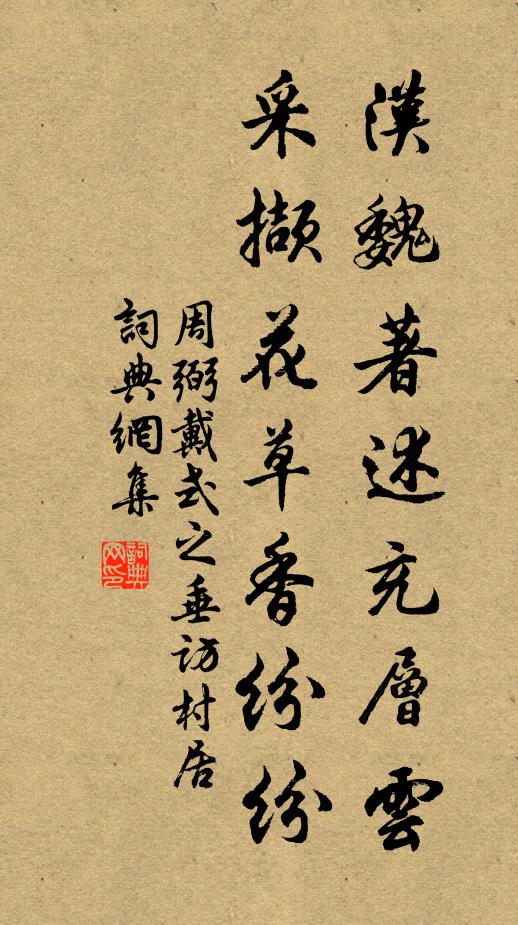 漢魏著述充層雲
采擷花草香紛紛
周弼戴式之垂訪村居
詞典網集
詞典網印